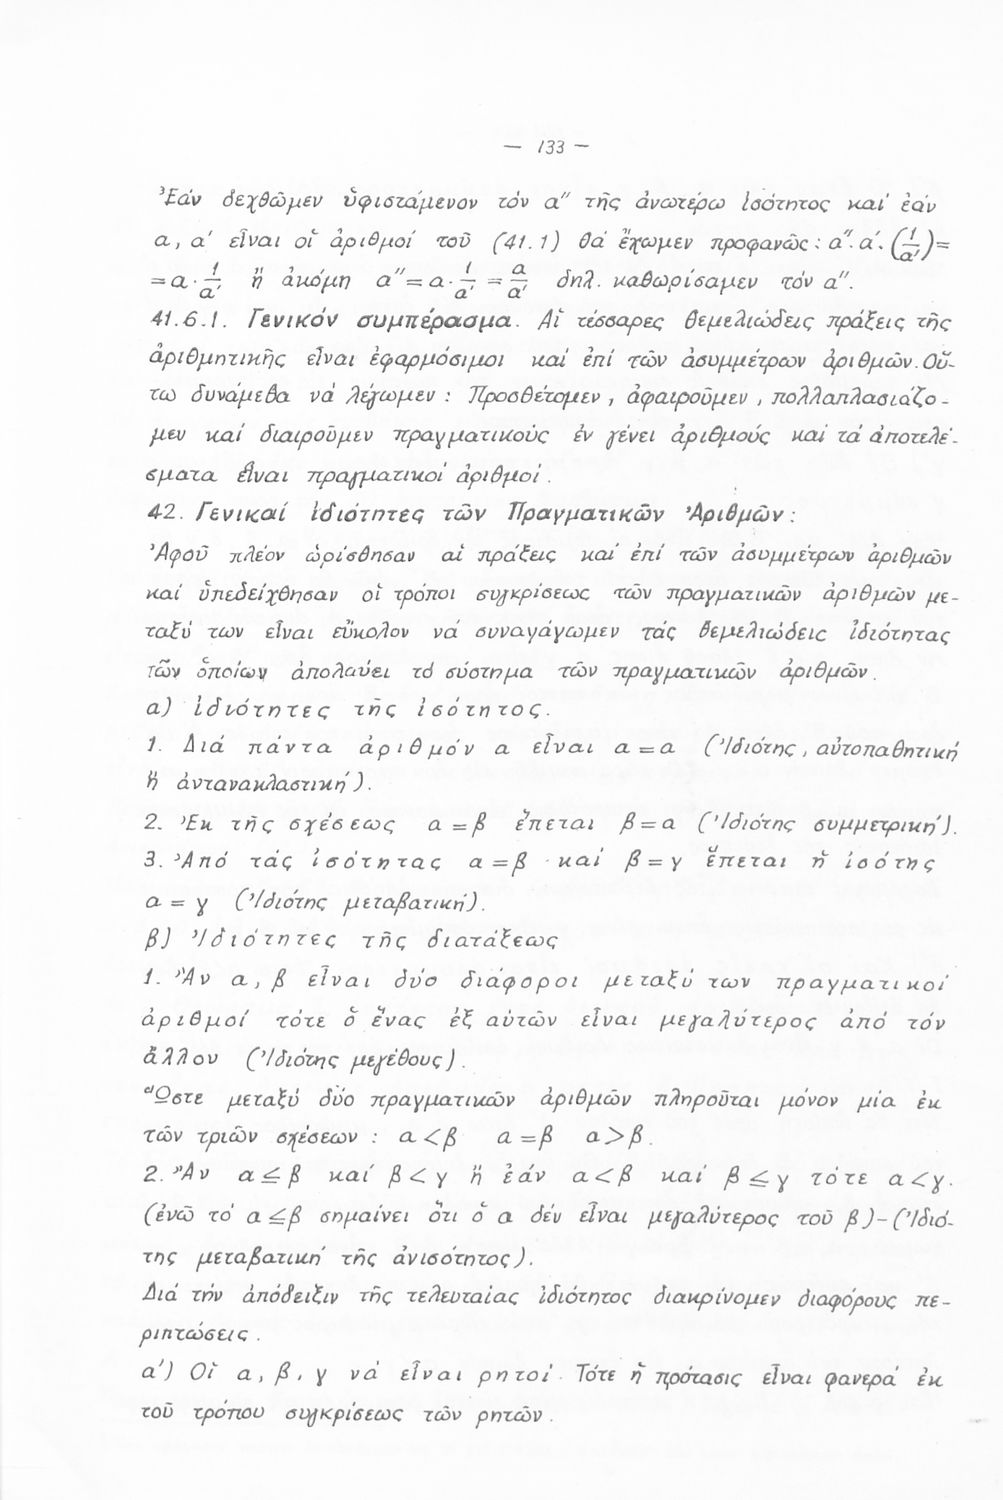 — 133 —
Ἐάν δεχθῶμεν ὑφιστάμενον τόν α″ τῆς ἀνωτέρω ἰσότητος καί ἐάν
α, α′ εἶναι οἱ ἀριθμοί τοῦ (41.1) θά ἔχωμεν προφανῶς: α″·α′·(1/α′)=
=α·1/α′ ἤ ἀκόμη α″=α·1/α′=α/α′ δηλ. καθωρίσαμεν τόν α″.
41.6.1. Γενικόν συμπέρασμα. Αἱ τέσσαρες θεμελιώδεις πράξεις τῆς
ἀριθμητικῆς εἶναι ἐφαρμόσιμοι καί ἐπί τῶν ἀσυμμέτρων ἀριθμῶν. Οὕ-
τω δυνάμεθα νά λέγωμεν: Προσθέτομεν, ἀφαιροῦμεν, πολλαπλασιάζο-
μεν καί διαιροῦμεν πραγματικούς ἐν γένει ἀριθμούς καί τά ἀποτελέ-
σματα εἶναι πραγματικοί ἀριθμοί.
42. Γενικαί ἰδιότητες τῶν Πραγματικῶν Ἀριθμῶν:
Ἀφοῦ πλέον ὡρίσθησαν αἱ πράξεις καί ἐπί τῶν ἀσυμμέτρων ἀριθμῶν
καί ὑπεδείχθησαν οἱ τρόποι συγκρίσεως τῶν πραγματικῶν ἀριθμῶν με-
ταξύ των εἶναι εὔκολον νά συναγάγωμεν τάς θεμελιώδεις ἰδιότητας
τῶν ὁποίων ἀπολαύει τό σύστημα τῶν πραγματικῶν ἀριθμῶν.
α) ἰδιότητες τῆς ἰσότητος.
1. Διά πάντα ἀριθμόν α εἶναι α=α (Ἰδιότης, αὐτοπαθητική
ἤ ἀντανακλαστική).
2. Ἐκ τῆς σχέσεως α=β ἕπεται β=α (Ἰδιότης συμμετρική).
3. Ἀπό τάς ἰσότητας α=β καί β=γ ἕπεται ἡ ἰσότης
α=γ (Ἰδιότης μεταβατική).
β) Ἰδιότητες τῆς διατάξεως
1. Ἄν α, β εἶναι δύο διάφοροι μεταξύ των πραγματικοί
ἀριθμοί τότε ὁ ἕνας ἐξ αὐτῶν εἶναι μεγαλύτερος ἀπό τόν
ἄλλον (Ἰδιότης μεγέθους).
Ὥστε μεταξύ δύο πραγματικῶν ἀριθμῶν πληροῦται μόνον μία ἐκ
τῶν τριῶν σχέσεων: α<β α=β α>β.
2. Ἄν α≤β καί β<γ ἤ ἐάν α<β καί β≤γ τότε α<γ.
(ἐνῶ τό α≤β σημαίνει ὅτι ὁ α δέν εἶναι μεγαλύτερος τοῦ β)-(Ἰδιό-
της μεταβατική τῆς ἀνισότητος).
Διά τήν ἀπόδειξιν τῆς τελευταίας ἰδιότητος διακρίνομεν διαφόρους πε-
ριπτώσεις.
α′) Οἱ α, β, γ νά εἶναι ρητοί. Τότε ἡ πρότασις εἶναι φανερά ἐκ
τοῦ τρόπου συγκρίσεως τῶν ρητῶν.